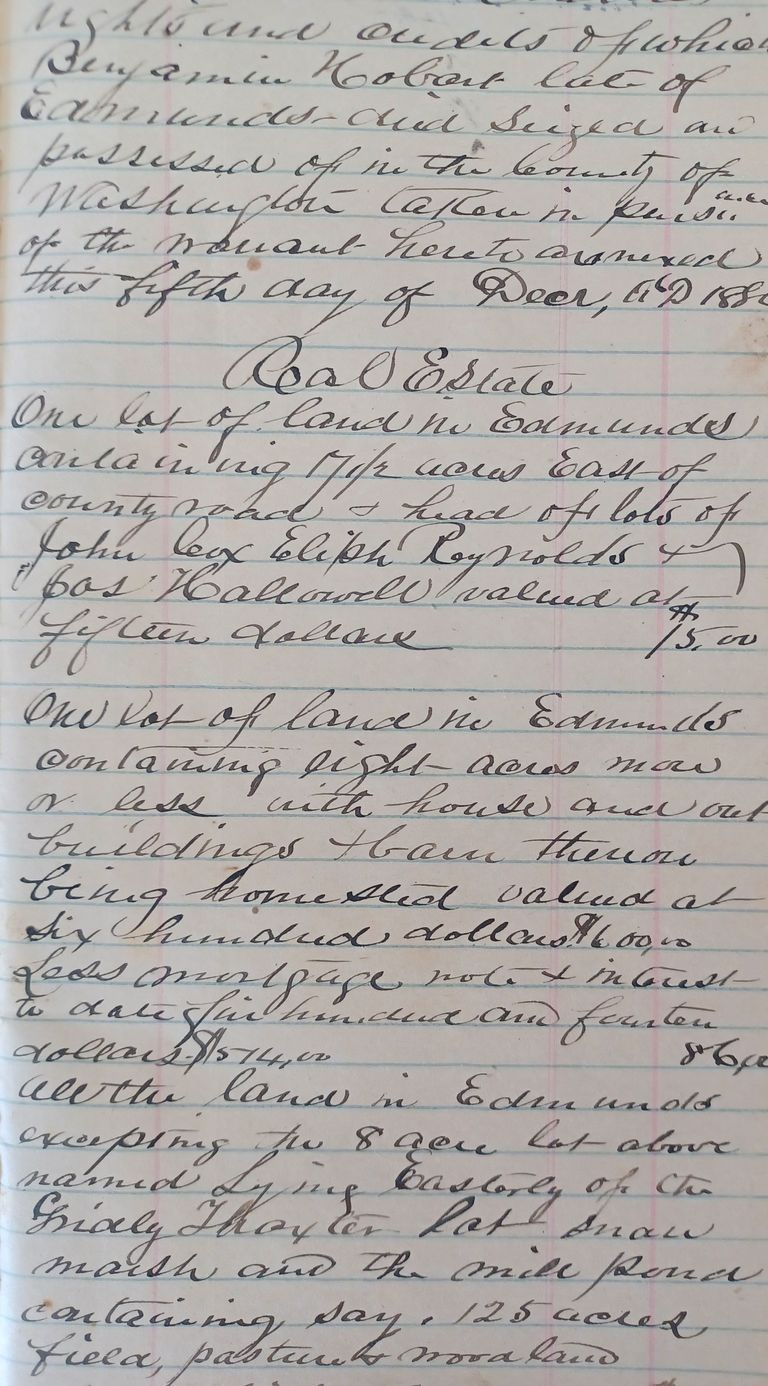 rights and credits of which
Benjamin Hobart late of
Edmunds died seized and
possessed of in the County of
Washington taken in pursuance
of the warrant hereto annexed
this fifth day of Decr, A.D 188
Real Estate
One lot of land in Edmunds
containing 17 1/2 acres East of
county road & head of lots of
John Cox Eliph Reynolds &
Jas Hallowell valued at
fifteen dollars $15.00
One lot of land in Edmunds
containing eight acres more
or less with house and out
buildings & barn thereon
being homested valued at
six hundred dollars $600,00
Less mortgage note & interest
to date five hundred and fourten
dollars $514,00 86,00
All the land in Edmunds
excepting the 8 acre lot above
named Lying Easterly of the
Gridly Thaxter lot snow
marsh and the mill pond
containing say, 125 acres
field, pasture & woodland